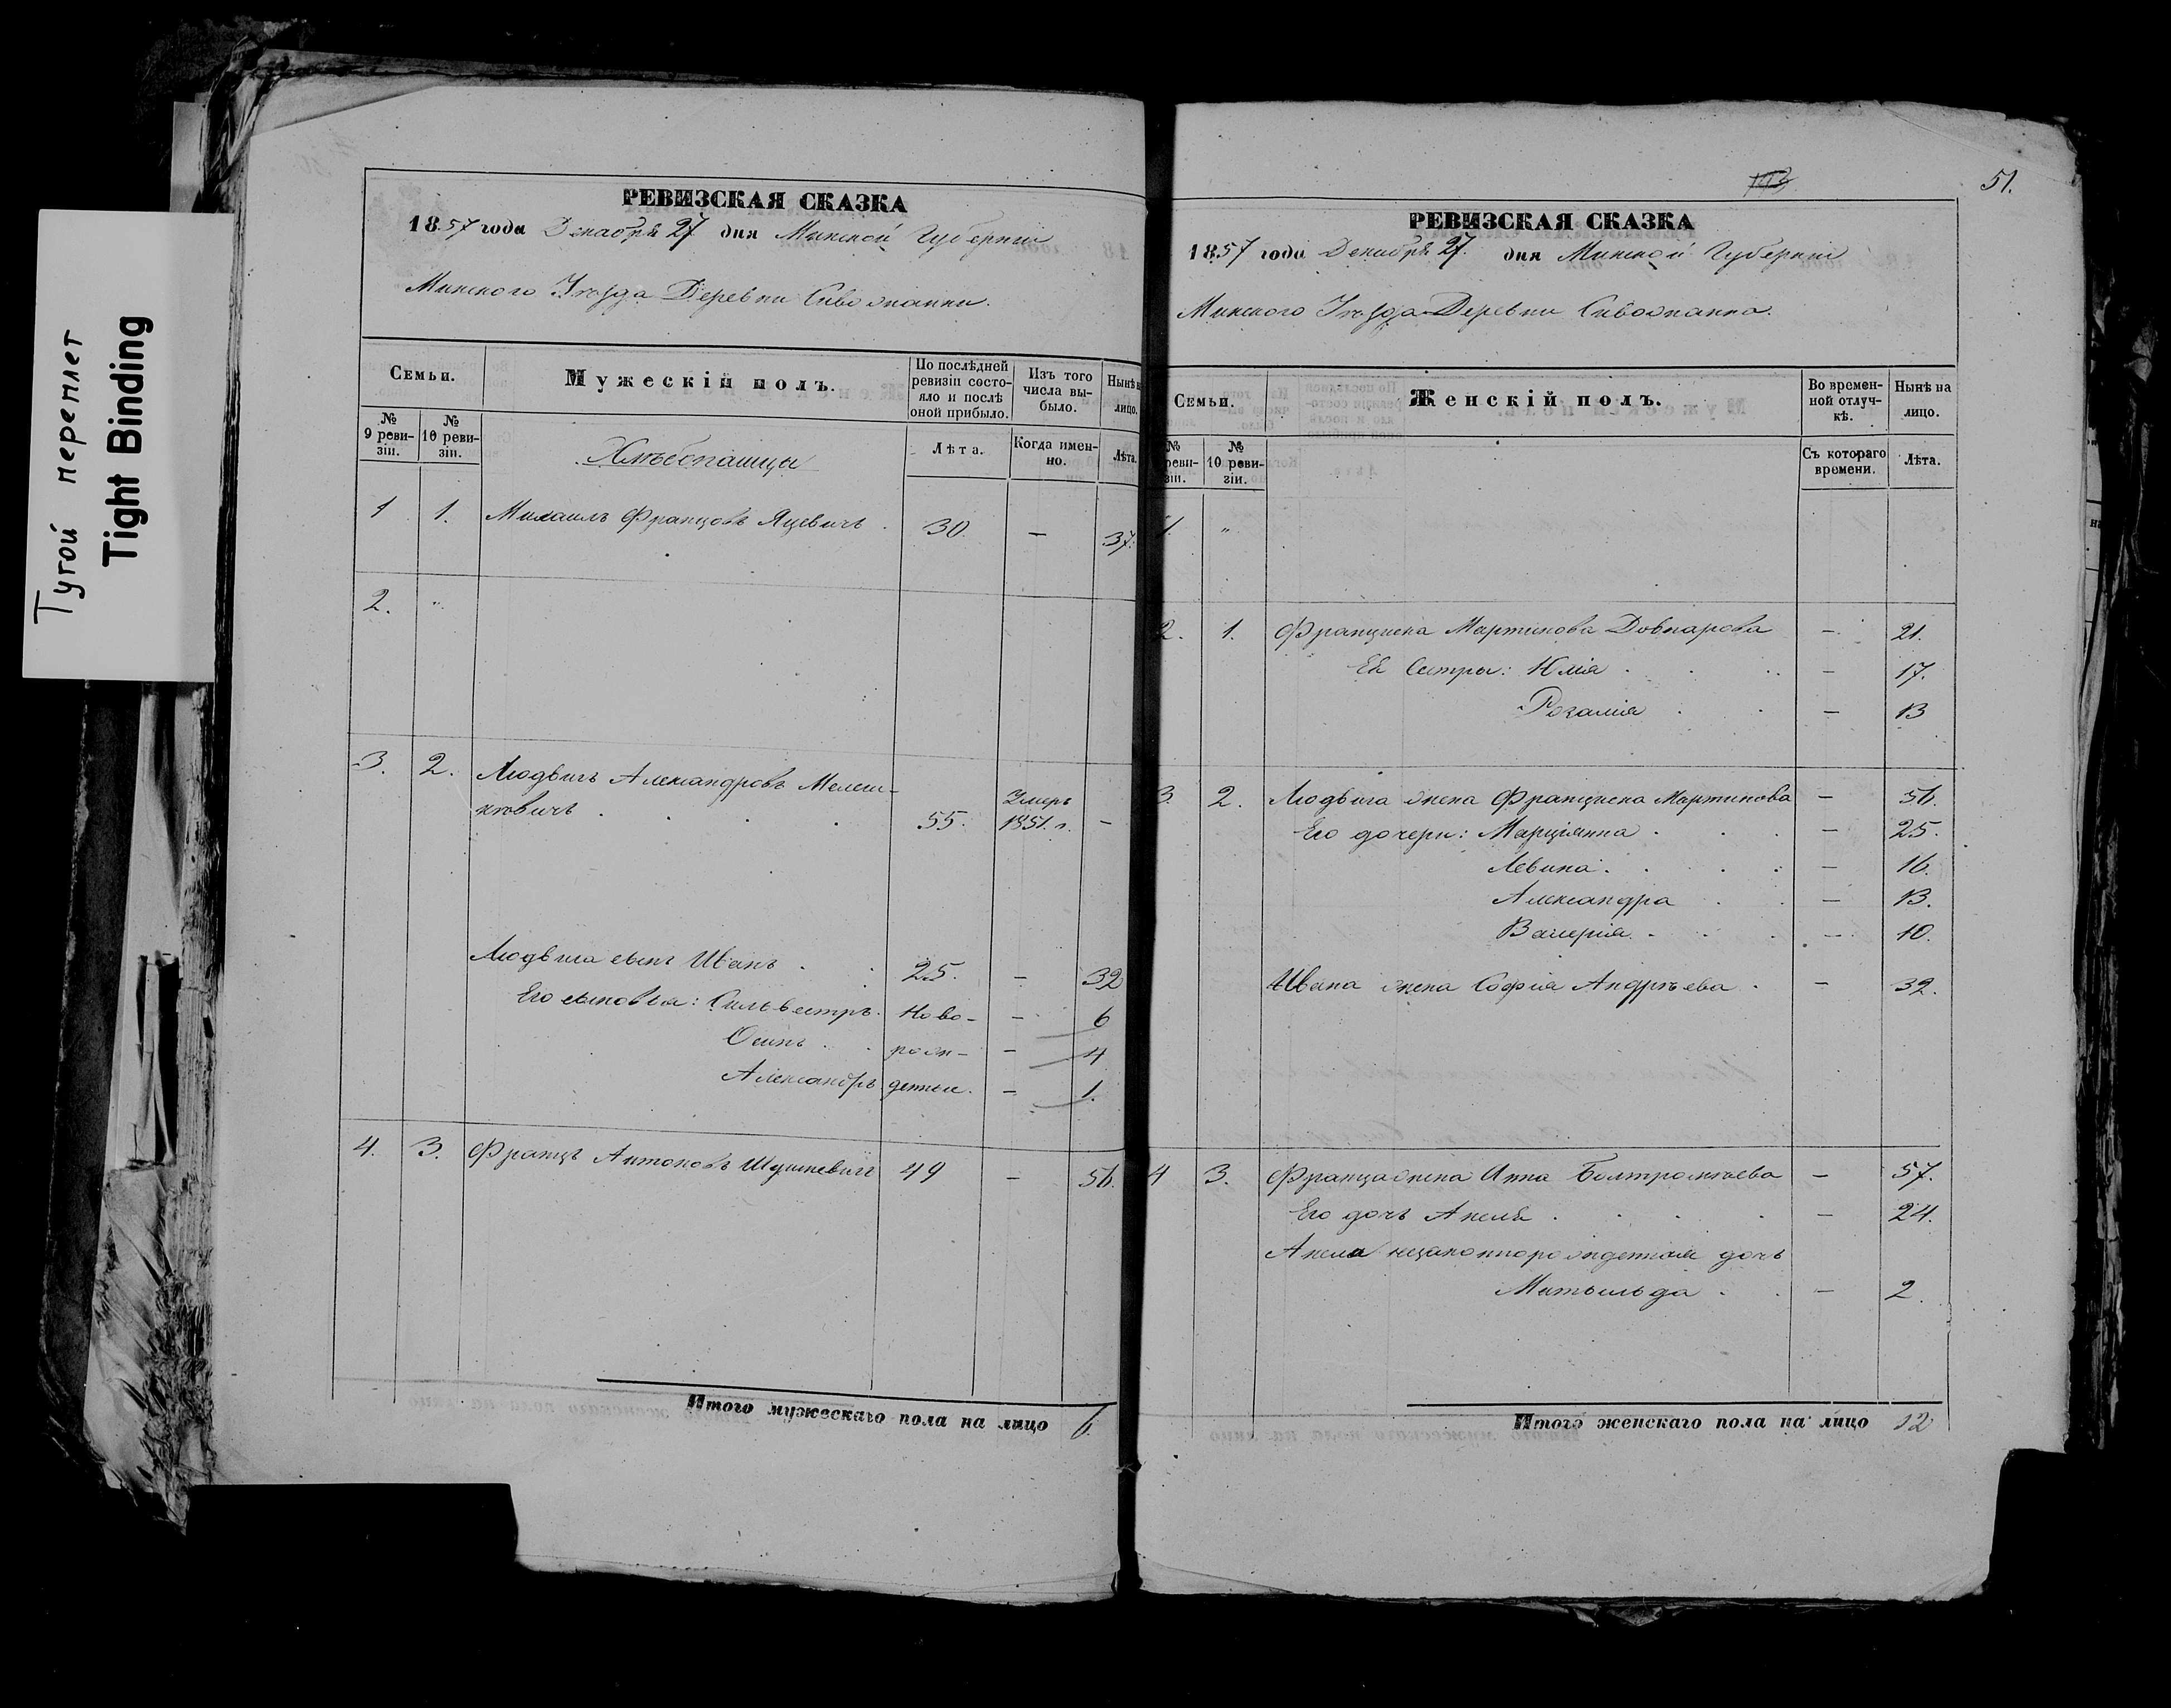 Тугой переплет
Tight Binding
РЕВИЗСКАЯ СКАЗКА
1857 года Декабря 27 дня Минской Губерніи
Минскаго Уѣзда Деревни
Семьи.
Мужескій полъ.
По послѣдней ревизіи состояло и послѣ оной прибыло.
Изъ того числа выбыло.
Нынѣ на лицо.
№ 9 ревизіи.
№ 10 ревизіи.
Хлѣбопашцы
Лѣта.
Когда именно.
Лѣта.
1 1. Михаилъ Францовъ Яцевичъ . 30. — 37.
2. „
3. 2. Людвигъ Александровъ Мелеш-
ковичъ . . . . 55. Умеръ 1851. г. —
Людвига сынъ Иванъ . . 25. — 32
Его сыновья: Сильвестръ. Ново- — 6
Осипъ . . рож- — 4
Александръ денные. — 1.
4. 3. Францъ Антоновъ Шушкевичъ 49 — 56.
Итого мужескаго пола на лицо 6.
51.
РЕВИЗСКАЯ СКАЗКА
1857 года Декабря 27. дня Минской Губерніи
Минскаго Уѣзда Деревни
Семьи.
Женскій полъ.
Во временной отлучкѣ.
Нынѣ на лицо.
№ реви-зіи.
№ 10 ревизіи.
Съ котораго времени.
Лѣта.
1. „
2. 1. Франциска Мартинова Довнарова — 21.
Ея Сестры: Юлія . . . — 17.
Розалія . . — 13
3. 2. Людвига жена Франциска Мартинова — 56.
Его дочери: Марціянна . . . — 25.
Левина . . . . — 16.
Александра . . — 13.
Валерія . . . — 10.
Ивана жена Софія Андрѣева . — 32.
4 3. Франца жена Анна Болтромѣева — 57.
Его дочь Анеля . . . . — 24.
Анели незаконнорожденная дочь
Матильда . . — 2.
Итого женскаго пола на лицо 12